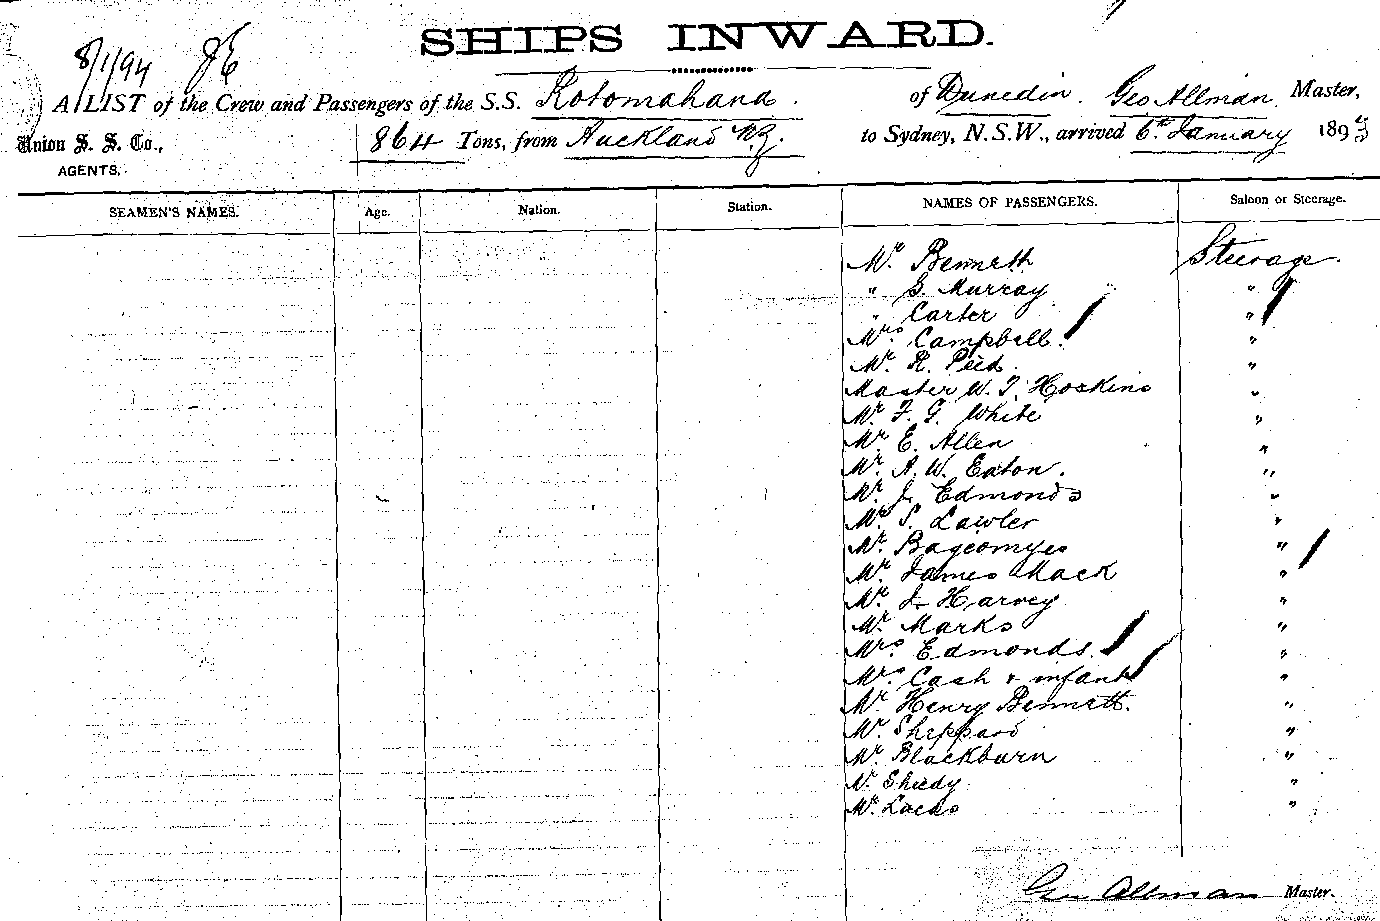 SHIPS INWARD.
8/1/94
A LIST of the Crew and Passengers of the S.S. Rotomahana of Dunedin. Geo Allman Master,
Union S. S. Co., 864 Tons, from Auckland N.Z. to Sydney, N.S.W., arrived 6th January 1893
AGENTS,
SEAMEN'S NAMES. Age. Nation. Station. NAMES OF PASSENGERS. Saloon or Steerage.
Mr Bennett Steerage
" G. Murray "
" Carter "
Mrs Campbell "
Mr. R. Peed "
Master W. T. Hoskins "
Mr F. G. White "
Mr E. Allen "
Mr. A. W. Eaton. "
Mr. J. Edmonds "
Mr. S. Lawler "
Mr. "
Mr. James Mack "
Mr. J. Harvey "
Mr. Marks "
Mrs Edmonds. "
Mrs Cash & infant "
Mr Henry Bennett. "
Mr. Sheppard "
Mr. Blackburn "
Mr. "
Mr. "
Geo Allman Master.